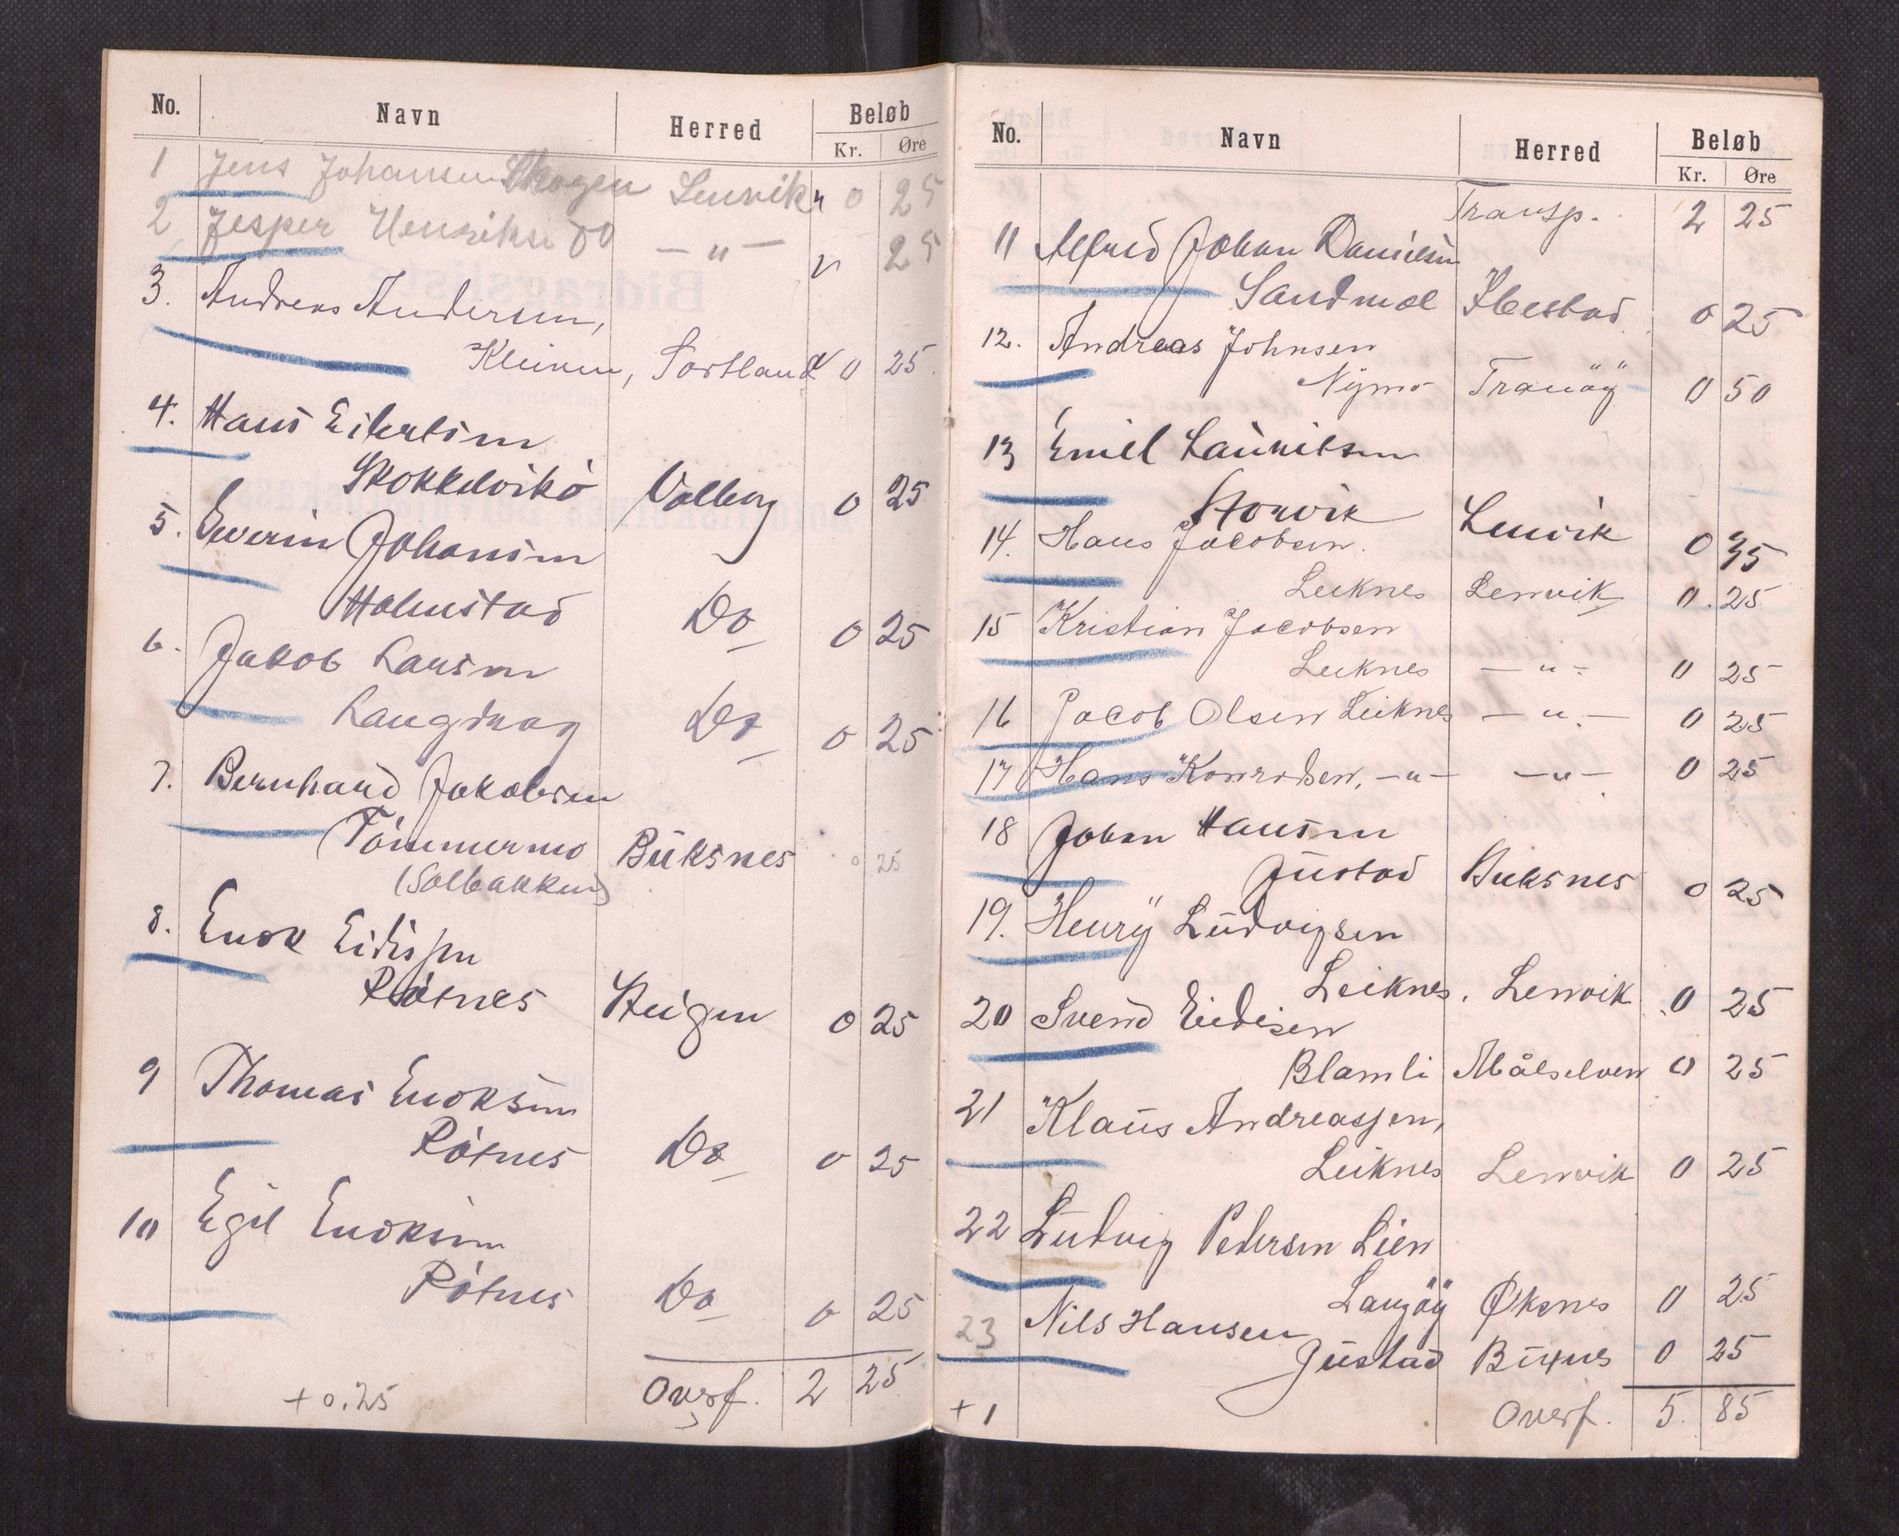 No. Navn Herred Beløb
Kr. Øre
1 Jens Johansen Skogen Lenvik 0 25
2 Jesper Henriks do — " — 25
3. Andreas Andersen,
Kleiven, Sortland 0 25.
4. Hans Eilertsen
Stokkelvikø Valberg 0 25
5. Severin Johansen
Holmstad Do 0 25
6. Jakob Larsen
Langdrag Do 0 25
7. Bernhard Jakobsen
Tømmermo Buksnes 0 25
(Solbakken)
8. Enok Edissen
Røtnes Steigen 0 25
9 Thomas Enoksen
Røtnes Do 0 25
10 Egil Enoksen
Røtnes Do 0 25
Overf. 2 25
+ 0.25
No. Navn Herred Beløb
Kr. Øre
Transp. 2 25
11 Alfred Johan Danielsen
Sandmæl Ibestad 0 25
12. Andreas Johnsen
Nymo Tranöy 0 50
13 Emil Lauritsen
Storvik Lenvik 0 35
14. Hans Jacobsen.
Leiknes Lenvik 0. 25
15 Kristian Jacobsen
Leiknes — " - 0 25
16 Jacob Olsen Leiknes — " — 0 25
17 Hans Konradsen, — " — — " — 0 25
18 Johan Hansen
Justad Buksnes 0 25
19. Henry Ludvigsen
Leiknes, Lenvik 0 25
20 Svend Eidisen
Blamli Målselven 0 25
21 Klaus Andreassen,
Leiknes Lenvik 0 25
22 Ludvig Pedersen Lien
Langöy Øksnes 0 25
23 Nils Hansen
Justad Buxnes 0 25
+ 1 Overf. 5. 85